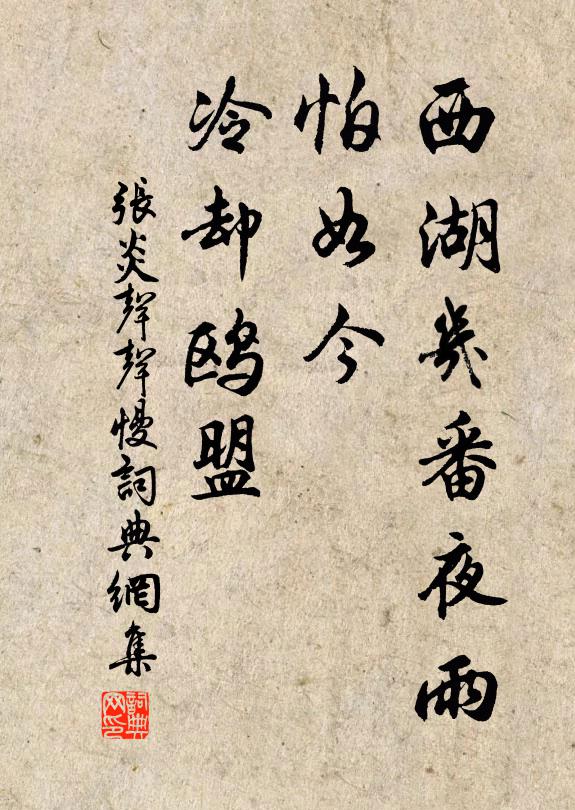 西湖幾番夜雨
怕如今
冷却鸥盟
張炎聲聲慢詞典網集
詞典
网印